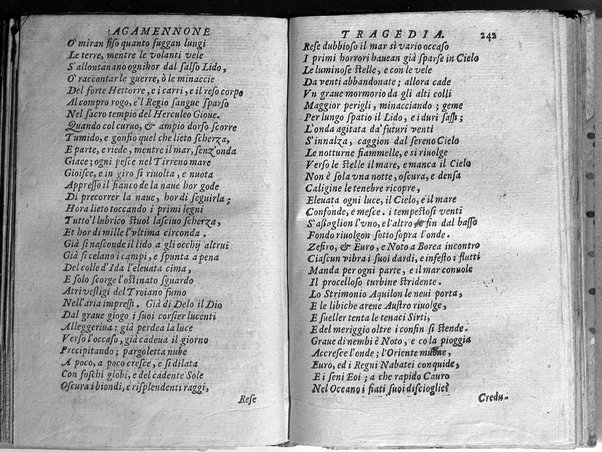 AGAMENNONE
O' miran fiso quanto fuggan lungi
Le terre, mentre le volanti vele
S'allontanano ognihor dal salso Lido,
O' raccontar le guerre, ò le minaccie
Del forte Hettorre, e i carri, e il reso corpo
Al compro rogo, e'l Regio sangue sparso
Nel sacro tempio del Herculeo Gioue.
Quando col curuo, & ampio dorso scorre
Tumido, e gonfio quel che lieto scherza,
E parte, e riede, mentre il mar, senz'onda
Giace; ogni pesce nel Tirreno mare
Gioisce, e in giro si riuolta, e nuota
Appresso il fianco de la naue hor gode
Di precorrer la naue, hor di seguirla;
Hora lieto toccando i primi legni
Tutto'l lubrico stuol lasciuo scherza,
Et hor di mille l'vltima circonda.
Già si nasconde il lido a gli occhij altrui
Già si celano i campi, e spunta a pena
Del colle d'Ida l'eleuata cima,
E solo scorge l'ostinato sguardo
Atri vestigi del Troiano fumo
Nell'aria impressi. Già di Delo il Dio
Dal graue giogo i suoi corsier lucenti
Alleggeriua; già perdea la luce
Verso l'occaso, già cadeua il giorno
Precipitando; pargoletta nube
A poco, a poco cresce, e si dilata
Con foschi globi, e del cadente Sole
Oscura i biondi, e risplendenti raggi,
Rese
TRAGEDIA. 242
Rese dubbioso il mar sì vario occaso
I primi horrori hauean già sparse in Cielo
Le luminose stelle, e con le vele
Da venti abbandonate; allora cade
Vn graue mormorio da gli alti colli
Maggior perigli, minacciando; geme
Per lungo spatio il Lido, e i duri sassi;
L'onda agitata da' futuri venti
S'innalza, caggion dal sereno Cielo
Le notturne fiammelle, e si riuolge
Verso le stelle il mare, e manca il Cielo
Non è sola vna notte, oscura, e densa
Caligine le tenebre ricopre,
Eleuata ogni luce, il Cielo, e il mare
Confonde, e mesce. i tempestosi venti
S'assaglion l'vno, e l'altro e fin dal basso
Fondo riuolgon sotto sopra l'onde.
Zefiro, & Euro, e Noto a Borea incontro
Ciascun vibra i suoi dardi, e infesto i flutti
Manda per ogni parte, e il mar conuole
Il procelloso turbine stridente.
Lo Strimonio Aquilon le neui porta,
E le libiche arene Austro riuolge,
E sueller tenta le tenaci Sirti,
E del meriggio oltre i confin si stende.
Graue di nembi è Noto, e co la pioggia
Accresce l'onde; l'Oriente muoue,
Euro, ed i Regni Nabatei conquide,
E i seni Eoi; a che rapido Cauro
Nel Oceano i fiati suoi discioglie?
Credu-